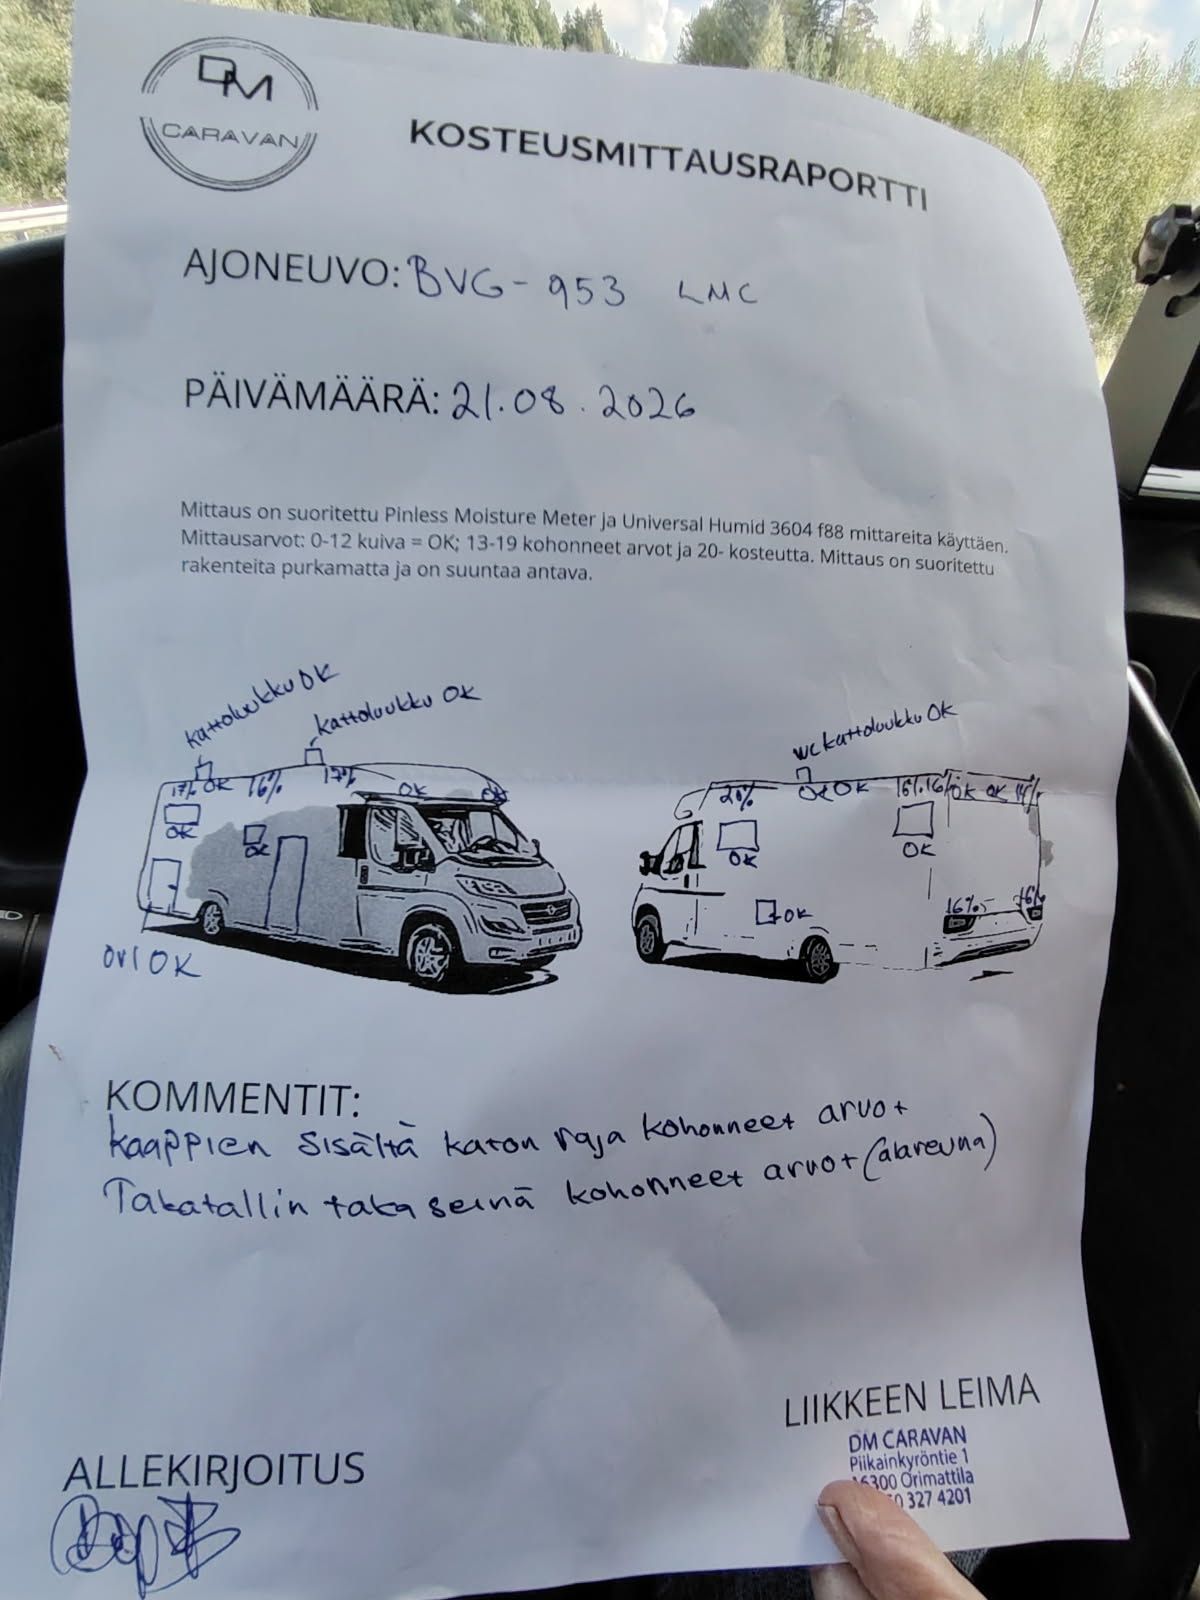 DM
CARAVAN
KOSTEUSMITTAUSRAPORTTI
AJONEUVO: BVG-953 LMC
PÄIVÄMÄÄRÄ: 21.08.2026
Mittaus on suoritettu Pinless Moisture Meter ja Universal Humid 3604 f88 mittareita käyttäen.
Mittausarvot: 0-12 kuiva = OK; 13-19 kohonneet arvot ja 20- kosteutta. Mittaus on suoritettu
rakenteita purkamatta ja on suuntaa antava.
kattoluukku OK
kattoluukku OK
17% OK 16% 17% OK OK
OK
OK
OVI OK
WC kattoluukku OK
20% OK OK 16% 16% OK OK
OK OK
OK
16% 16%
KOMMENTIT:
kaappien sisältä katon raja kohonneet arvot
Takatallin takaseinä kohonneet arvot (alareuna)
LIIKKEEN LEIMA
DM CARAVAN
Piikainkyröntie 1
16300 Orimattila
0 327 4201
ALLEKIRJOITUS